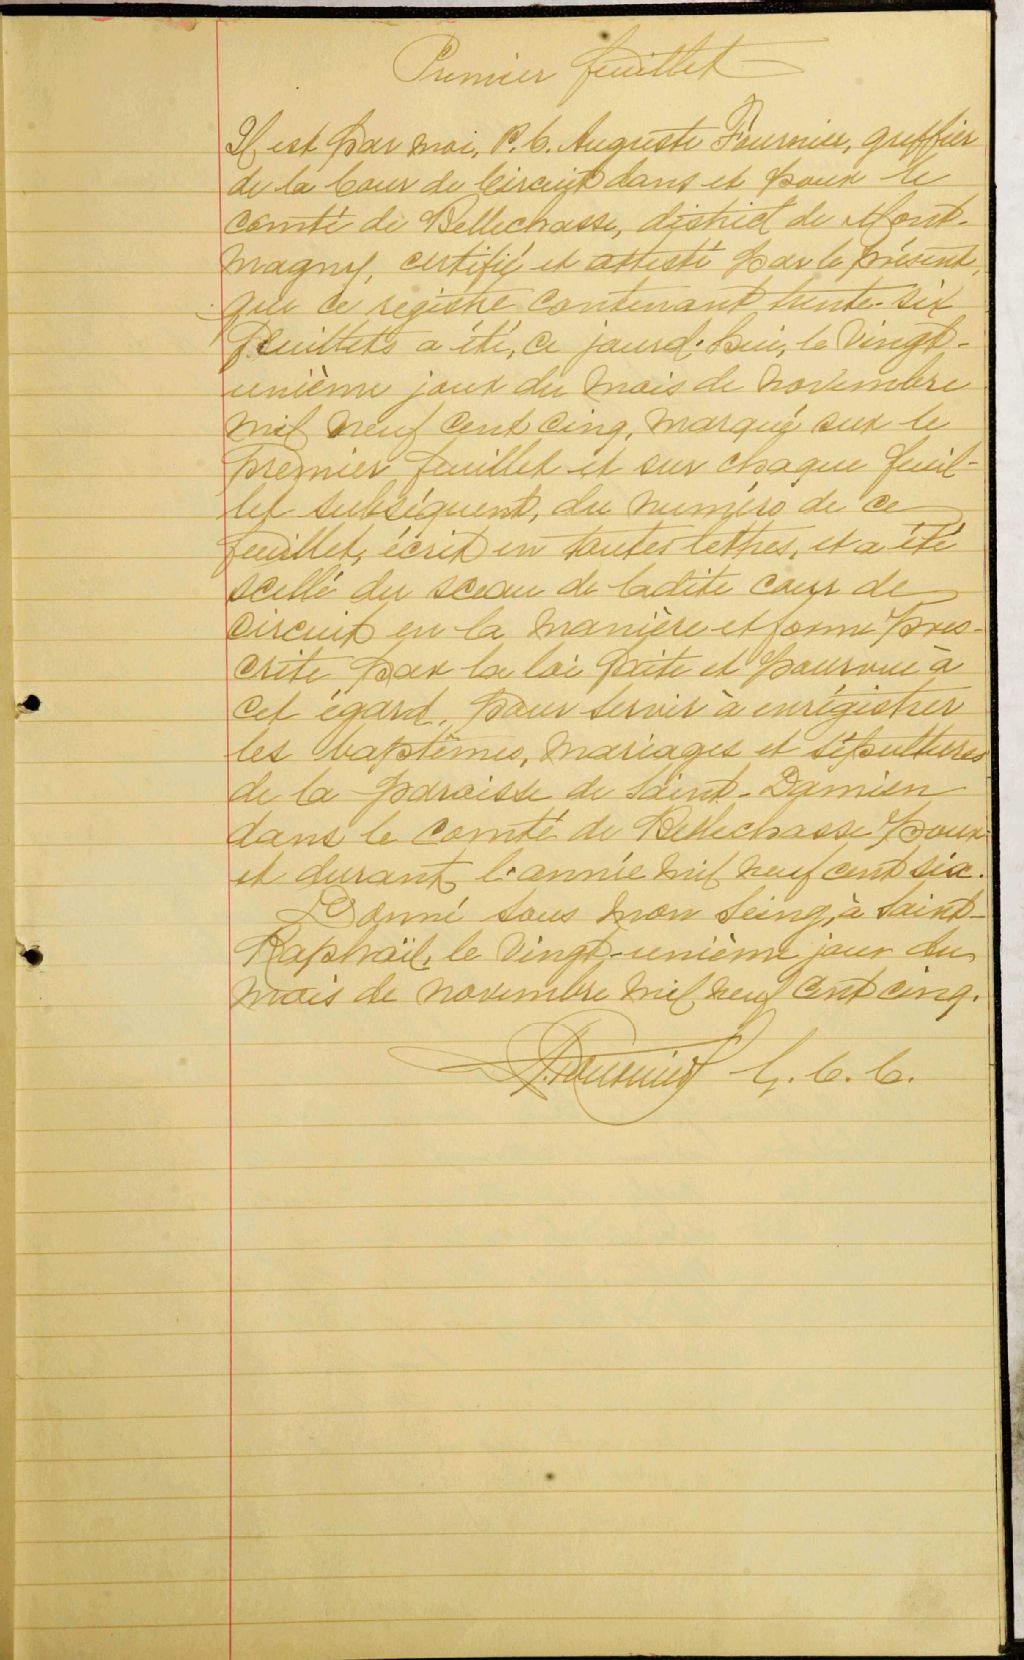 Premier feuillet
Il est par moi, P. C. Auguste Fournier, greffier
de la Cour de Circuit dans et pour le
comté de Bellechasse, district de Mont-
magny, certifié et attesté par le présent,
que ce registre contenant trente-six
feuillets a été, ce jourd'hui, le vingt-
unième jour du mois de novembre
mil neuf cent cinq, marqué sur le
premier feuillet et sur chaque feuil-
let subséquent, du numéro de ce
feuillet, écrit en toutes lettres, et a été
scellé du sceau de ladite cour de
circuit en la manière et forme pres-
crite par la loi faite et pourvue à
cet égard, pour servir à enrégistrer
les baptêmes, mariages et sépultures
de la paroisse de Saint-Damien
dans le comté de Bellechasse pour
et durant l'année mil neuf cent six.
Donné sous mon seing, à Saint-
Raphaël, le vingt-unième jour du
mois de novembre mil neuf cent cinq.
A. Fournier G. C. C.